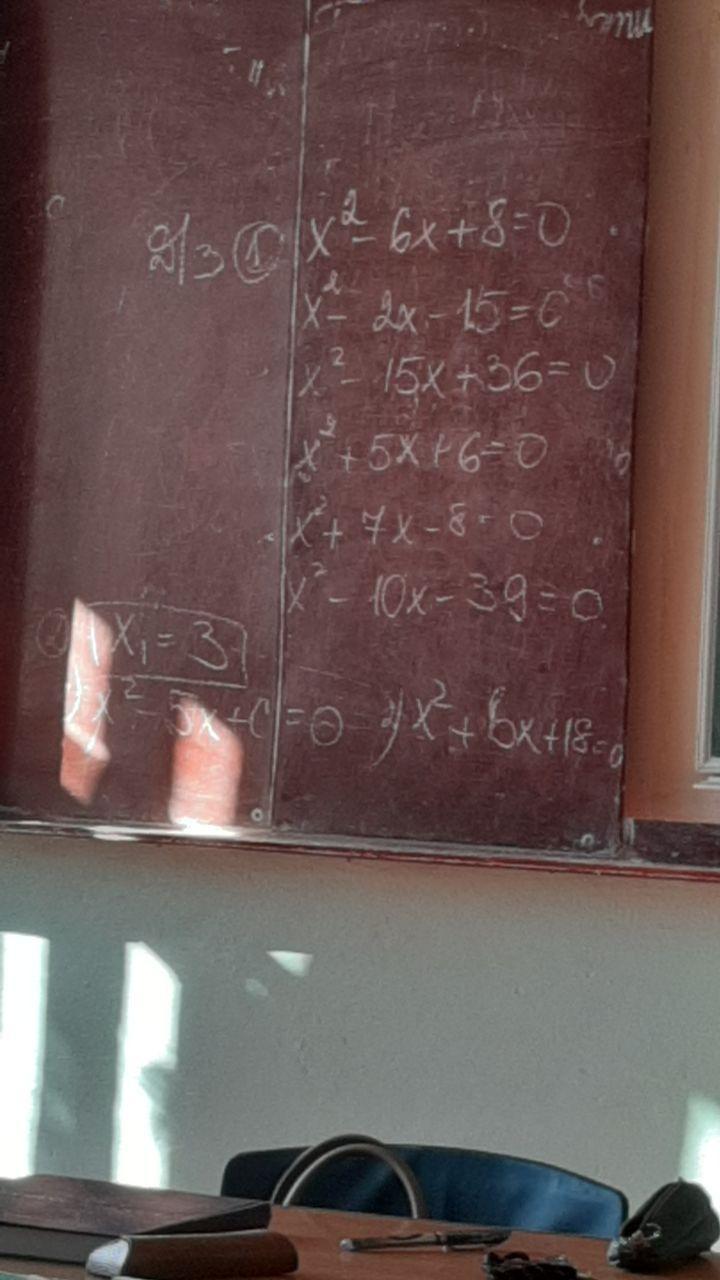 Д/з ① x² - 6x + 8 = 0
x² - 2x - 15 = 0
x² - 15x + 36 = 0
x² + 5x + 6 = 0
x² + 7x - 8 = 0
x² - 10x - 39 = 0
② x₁ = 3
x² - 5x + c = 0 2) x² + bx + 18 = 0